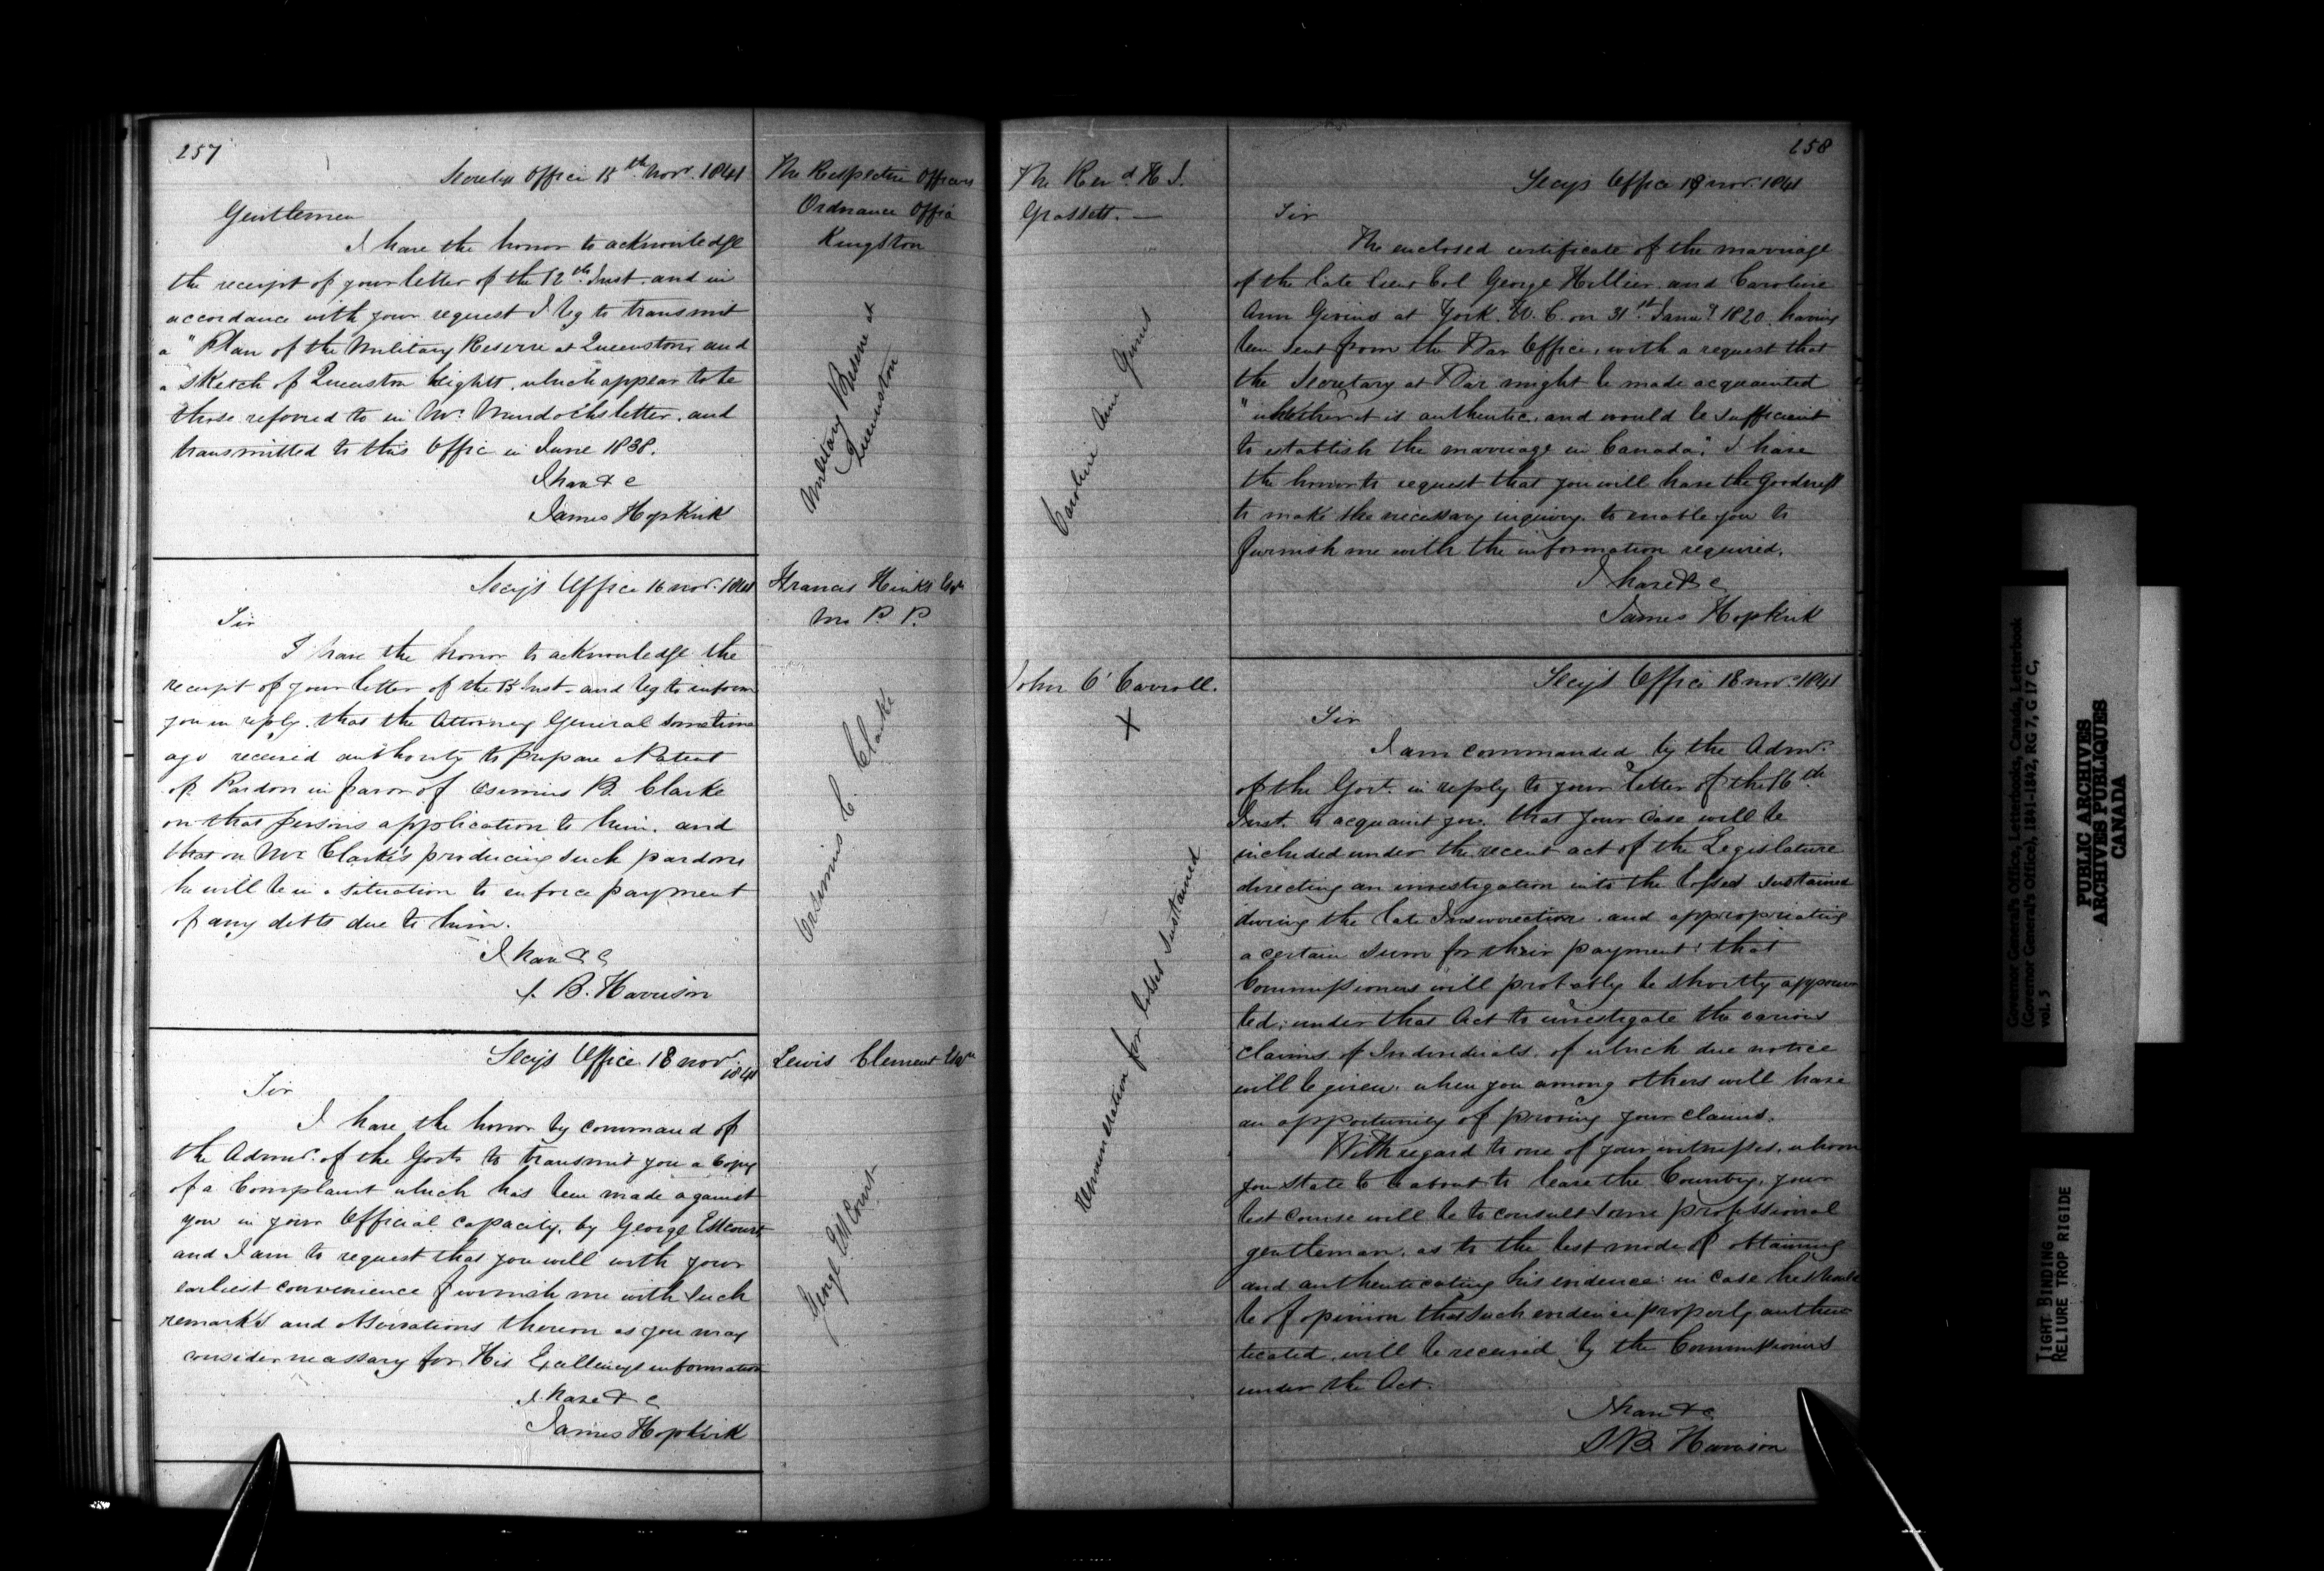 257
Secretys Office 15th Novr. 1841
The Respective Officers
Ordnance Office
Kingston
Military Reserve at
Queenston
Gentlemen
I have the honor to acknowledge
the receipt of your letter of the 12th Inst. and in
accordance with your request I beg to transmit
a "Plan of the Military Reserve at Queenston, and
a "Sketch of Queenston heights, which appear to be
those referred to in Mr. Murdoch's letter, and
transmitted to this Office in June 1838.
I have &c
James Hopkirk
Secy's Office 16 Novr. 1841
Francis Hinks Esqr
M. P. P.
Sir
I have the honor to acknowledge the
receipt of your letter of the 15 Inst. and beg to inform
you in reply, that the Attorney General sometime
ago received authority to prepare a Patent
of Pardon in favor of Orsimus B. Clarke
on that persons application to him, and
that on Mr Clarke's producing such pardon
he will be in a situation to enforce payment
of any debts due to him.
I have &c
S. B. Harrison
Orsimus C. Clarke
Secy's Office 18 Novr.
1841
Lewis Clement Esqr
Sir
I have the honor by command of
the Admr. of the Govt. to transmit you a Copy
of a Complaint which has been made against
you in your Official capacity, by George Estcourt
and I am to request that you will with your
earliest convenience furnish me with such
remarks and observations thereon as you may
consider necessary for His Excellency's information
I have &c
James Hopkirk
George Estcourt
258
The Revd. H J.
Grassett. —
Secy's Office 18 Nov. 1841
Sir
The enclosed certificate of the marriage
of the late Lieut Col George Hillier and Caroline
Ann Givins at York. U. C. on 31st. Jany. 1820. having
been sent from the War Office, with a request that
the Secretary at War might be made acquainted
"whether it is authentic, and would be sufficient
to establish the marriage in Canada," I have
the honor to request that you will have the goodness
to make the necessary inquiry, to enable you to
furnish me with the information required.
I have &c
James Hopkirk
Caroline Ann Givins
John O'Carroll.
X
Secy's Office 18 Nov. 1841
Sir
I am commanded by the Admr.
of the Govt. in reply to your letter of the 16th
Inst. to acquaint you, that your case will be
included under the recent act of the Legislature
directing an investigation into the losses sustained
during the late Insurrection, and appropriating
a certain sum for their payment: that
Commissioners will probably be shortly appoin-
ted, under that Act to investigate the various
claims of Individuals, of which due notice
will be given, when you among others will have
an opportunity of proving your claims.
With regard to one of your witnesses, whom
you state to be about to leave the Country, your
best course will be to consult some professional
gentleman, as to the best mode of obtaining
and authenticating his evidence: in case he should
be of opinion that such evidence properly authen-
ticated, will be received by the Commissioners
under the Act.
I have &c
S B. Harrison
Remuneration for losses sustained
Governor General's Office, Letterbooks, Canada, Letterbook
(Governor General's Office), 1841-1842, RG 7, G 17 C,
vol. 5
PUBLIC ARCHIVES
ARCHIVES PUBLIQUES
CANADA
TIGHT BINDING
RELIURE TROP RIGIDE